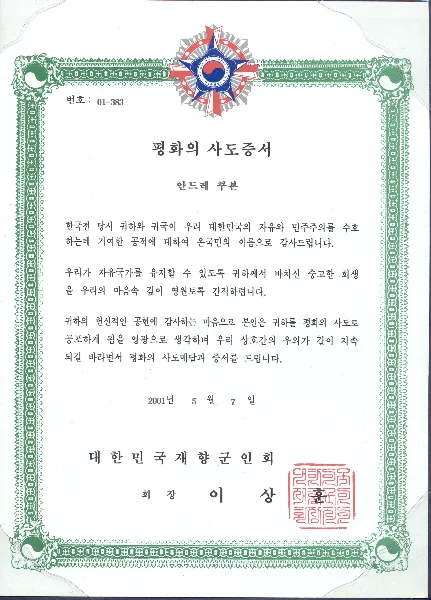 번호 : 01-383
평화의 사도증서
안드레 쿠본
한국전 당시 귀하와 귀국이 우리 대한민국의 자유와 민주주의를 수호
하는데 기여한 공적에 대하여 온국민의 이름으로 감사드립니다.
우리가 자유국가를 유지할 수 있도록 귀하께서 바치신 숭고한 희생
을 우리의 마음속 깊이 영원토록 간직하렵니다.
귀하의 헌신적인 공헌에 감사하는 마음으로 본인은 귀하를 평화의 사도로
공포하게 됨을 영광으로 생각하며 우리 상호간의 우의가 깊이 지속
되길 바라면서 평화의 사도메달과 증서를 드립니다.
2001년 5 월 7 일
대한민국재향군인회
회 장 이 상 훈